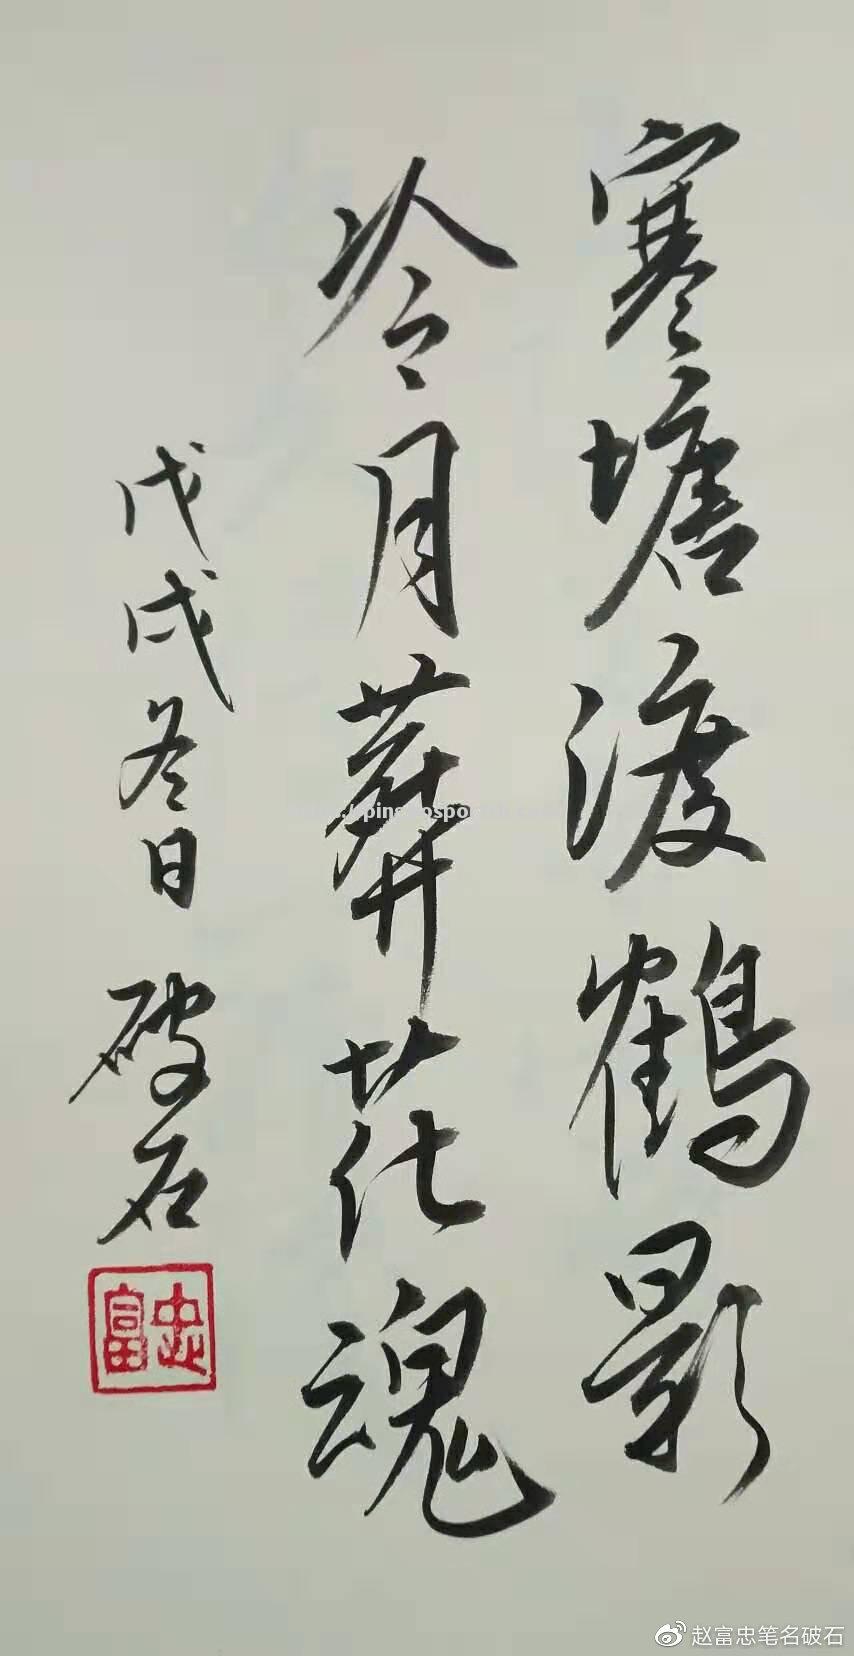 寒塘渡鶴影
冷月葬花魂
戊戌冬日 破石
富忠
赵富忠笔名破石